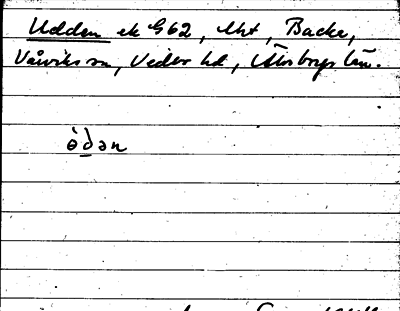 Udden ek G62, Uht, Backe,
Vårviks sn, Vedbo hd, Älvsborgs län.
òdən